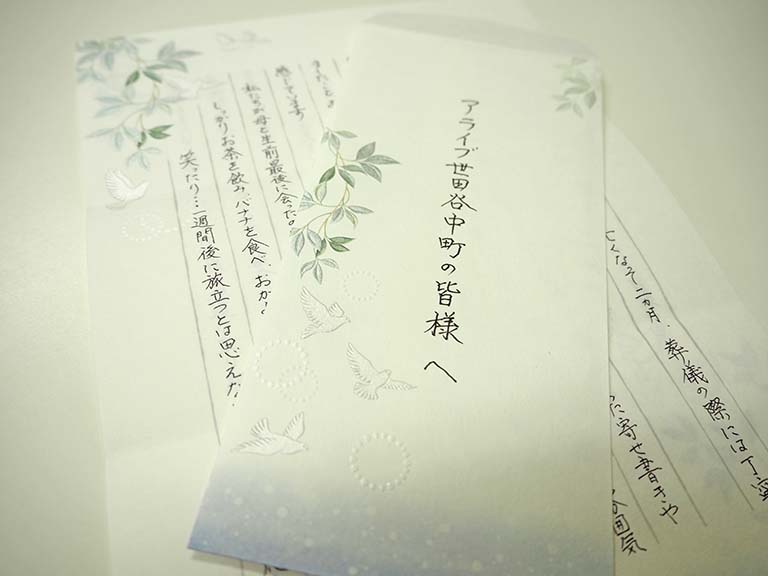 アライブ世田谷中町の皆様へ
感じています
私たちが母と生前最後に会った
しっかりお茶を飲み、バナナを食べ、おか
笑ったり…一週間後に旅立つとは思えな
くなって二カ月、葬儀の際には丁寧
に寄せ書きや
囲気